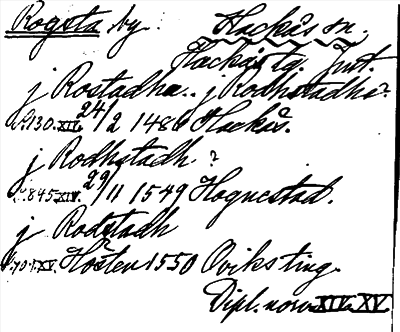 Rogsta by. Hackås sn.
Hackås tg. Jmt.
j Rostadha.. j Rodhstadhe?
s. 130. XIV. 24/2 148 Hackås.
j Rodhstadh ?
s. 845. XIV. 29/11 1549 Hognestad.
j Rodstadh
XV. Hösten 1550 Oviksting.
Dipl. norv. XIV, XV.